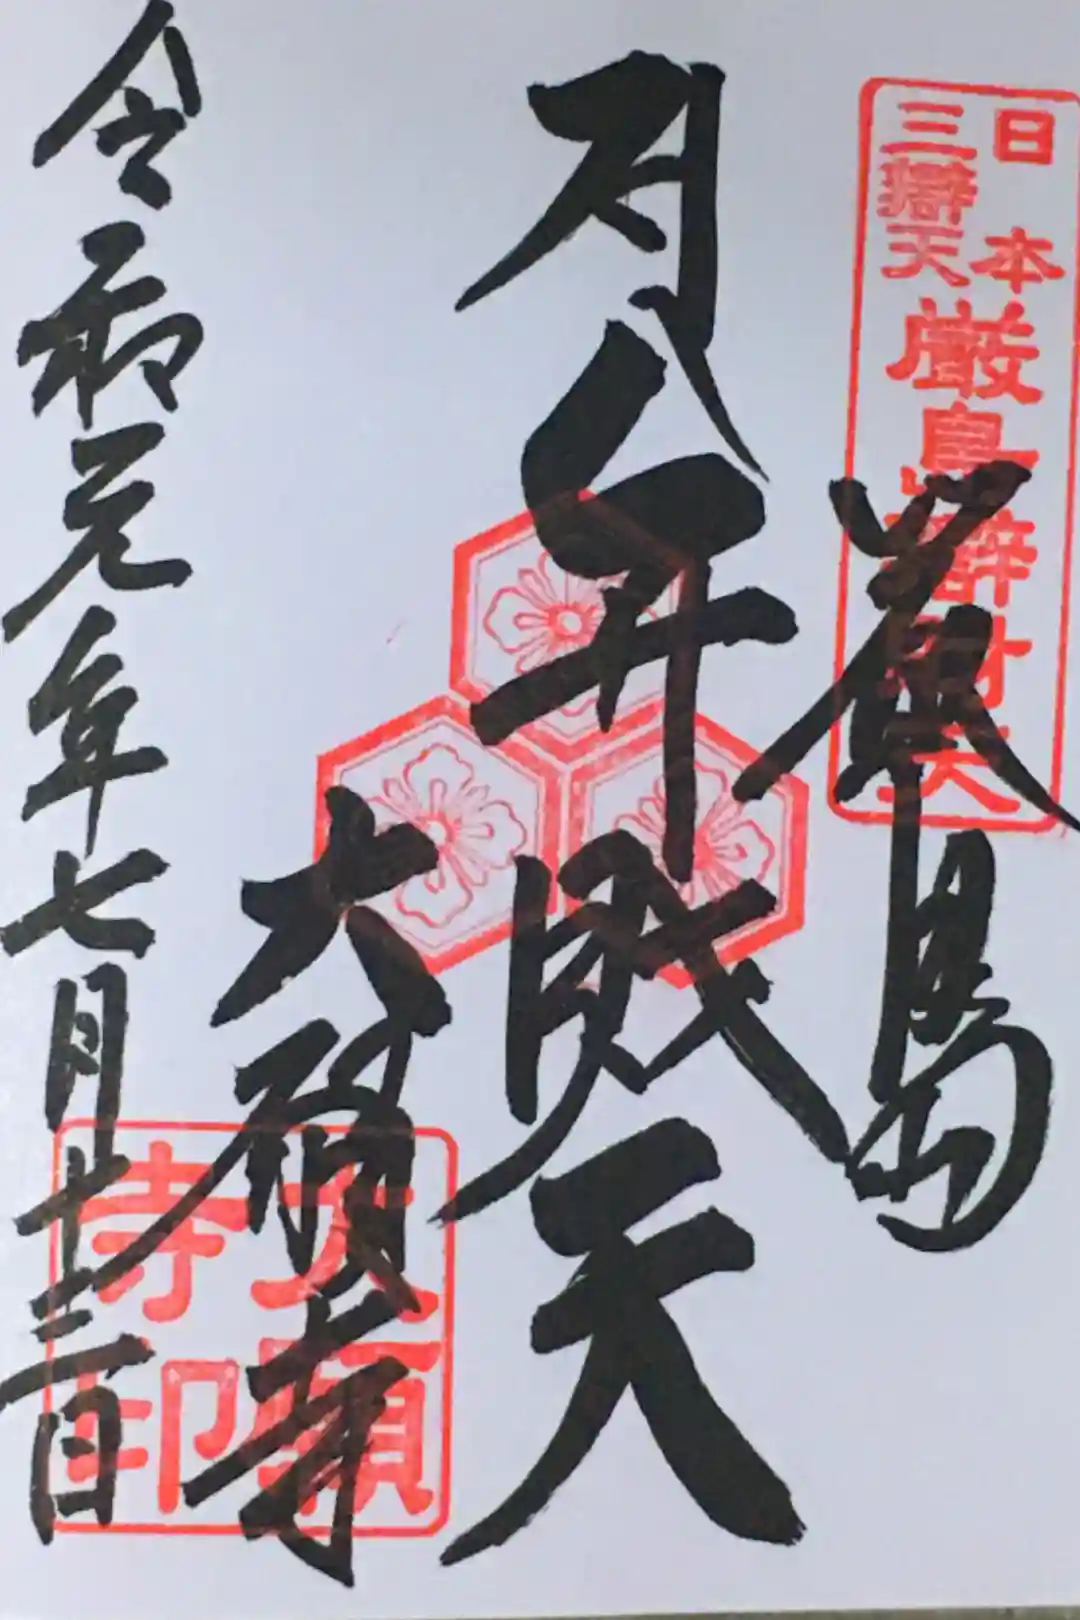 日本
三辯天
厳島辯財天
厳島
弁財天
大願寺
大願
寺印
令和元年七月十三日